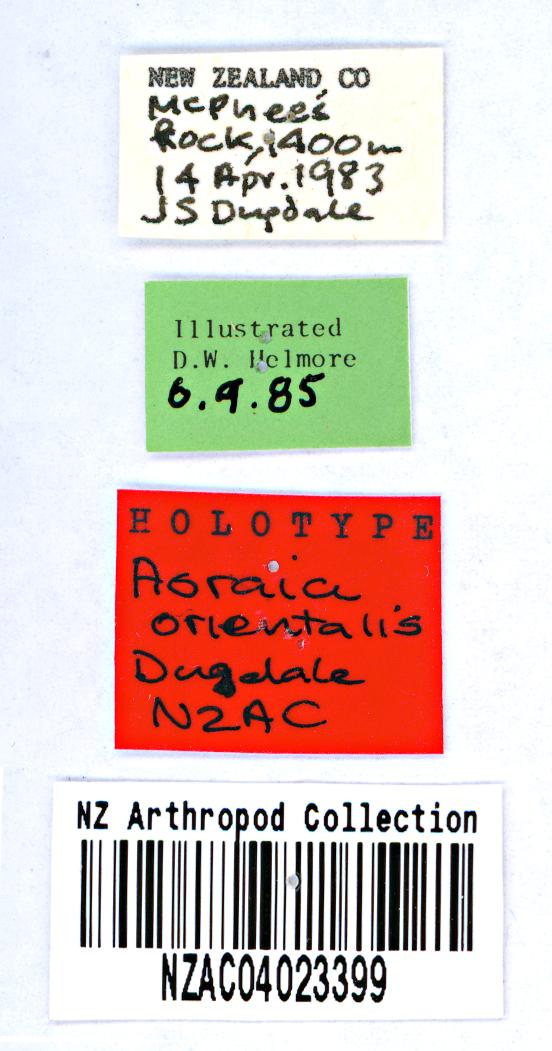 NEW ZEALAND CO
McPhee's
Rock, 1400m
14 Apr. 1983
JS Dugdale
Illustrated
D.W. Helmore
6.9.85
HOLOTYPE
Aoraia
orientalis
Dugdale
NZAC
NZ Arthropod Collection
NZAC04023399